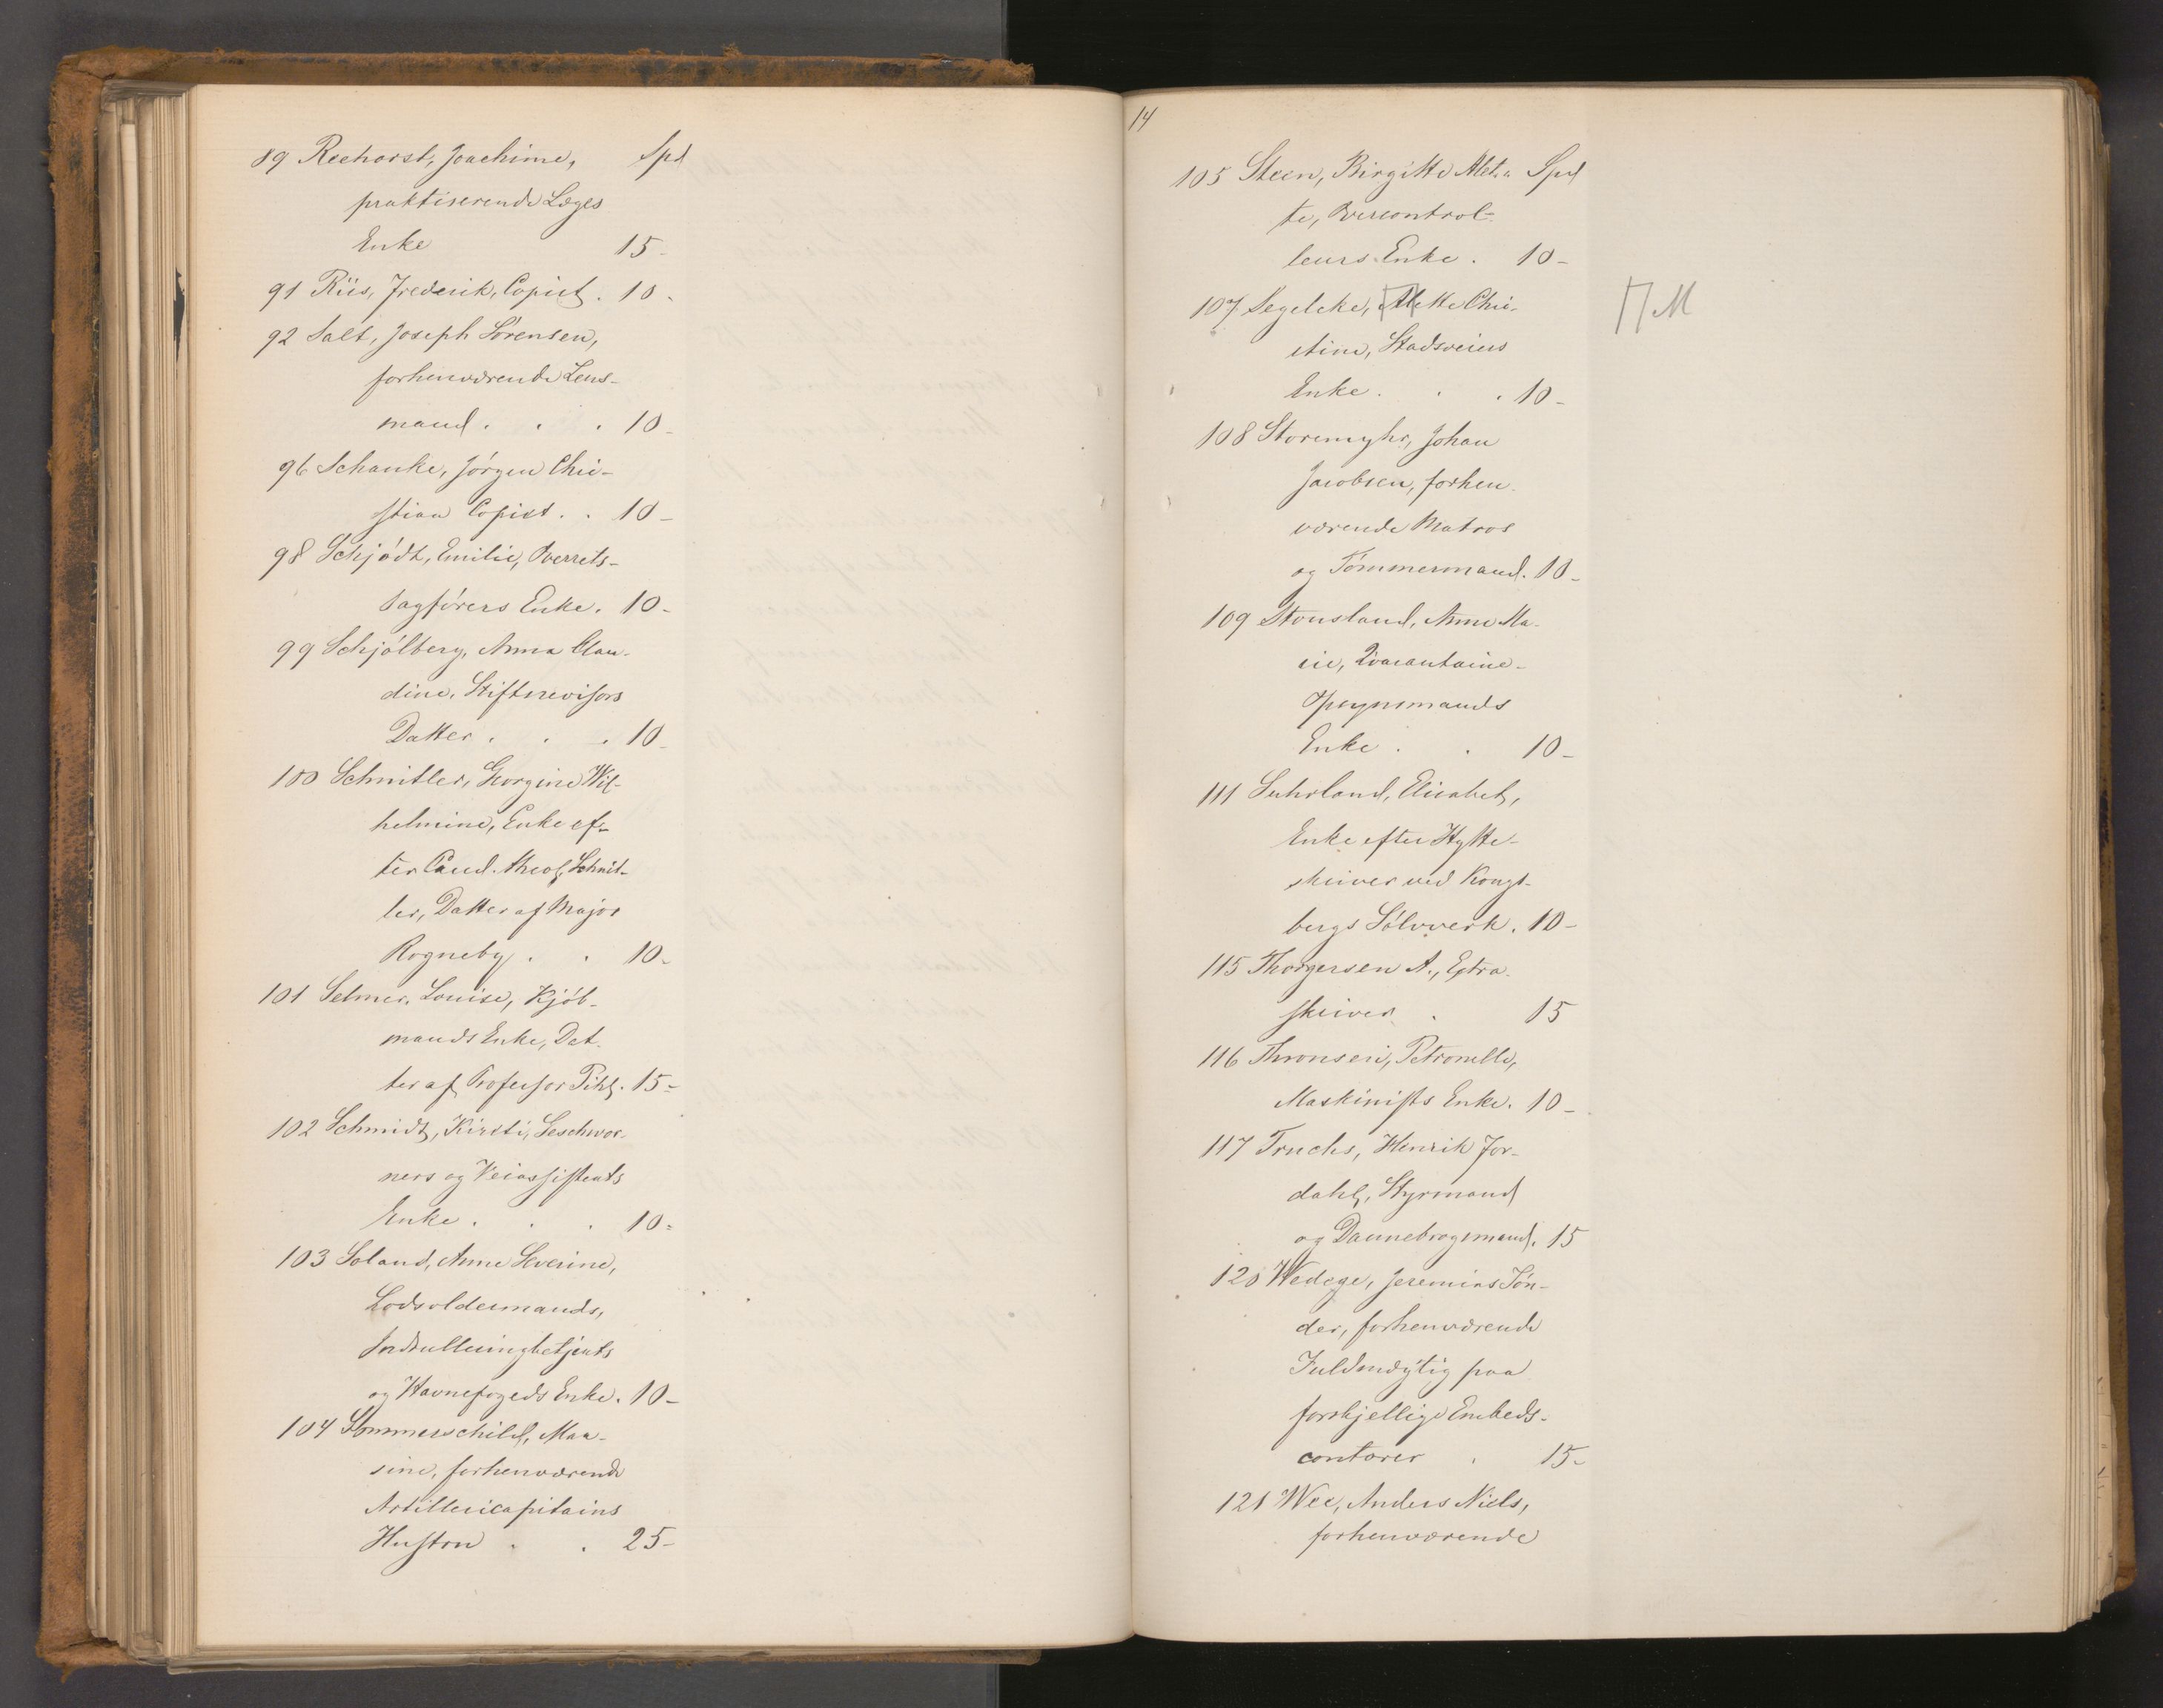 89 Reehorst, Joachime, Spd
praktiserende Læges
Enke 15-
91 Riis, Frederik, Copist. 10-
92 Salt, Joseph Sörensen,
forhenværende Lens-
mand . . . 10-
96 Schanke, Jörgen Chri-
stian Copist. . 10-
98 Schjödt, Emilie, Overrets-
sagförers Enke. 10-
99 Schjölberg, Anna Clau-
dine, Stiftsrevisors
Datter . . . 10-
100 Schnitler, Georgine Wil-
helmine, Enke ef-
ter Cand. theol. Schnit-
ler, Datter af Major
Rogneby . . 10-
101 Selmer, Louise, Kjöb-
mands Enke, Dat-
ter af Professor Pihl. 15-
102 Schmidt, Kirsti, Geschwor-
ners og Veiassistents
Enke . . . 10-
103 Soland, Anne Severine,
Lodsoldermands,
Indrulleringsbetjents
og Havnefogeds Enke. 10-
104 Sommerschild, Maa-
sine, forhenværende
Artillericapitains
Hustru . . 25-
14
105 Steen, Birgitte Alet- Spd
te, Overcontrol-
leurs Enke . 10-
107 Segelcke, Alette Chri-
stine, Stadsveiers
Enke . . . 10-
M
108 Storemyhr, Johan
Jacobsen, forhen-
værende Matros
og Tömmermand. 10-
109 Stousland, Anne Ma-
rie, Qvarantaine-
Opsynsmands
Enke . . 10-
111 Suhrland, Elisabet,
Enke efter Hytte-
skriver ved Kongs-
bergs Sölvverk. 10-
115 Thorgersen A., Extra-
skriver . 15
116 Thronsen, Petronelle,
Maskinists Enke. 10-
117 Truchs, Henrik Jor-
dahl, Styrmand
og Dannebrogsmand. 15
120 Wedege, Jeremias Tön-
der, forhenværende
Fuldmægtig paa
forskjellige Embeds-
contorer . 15-
121 Wee, Anders Niels,
forhenværende